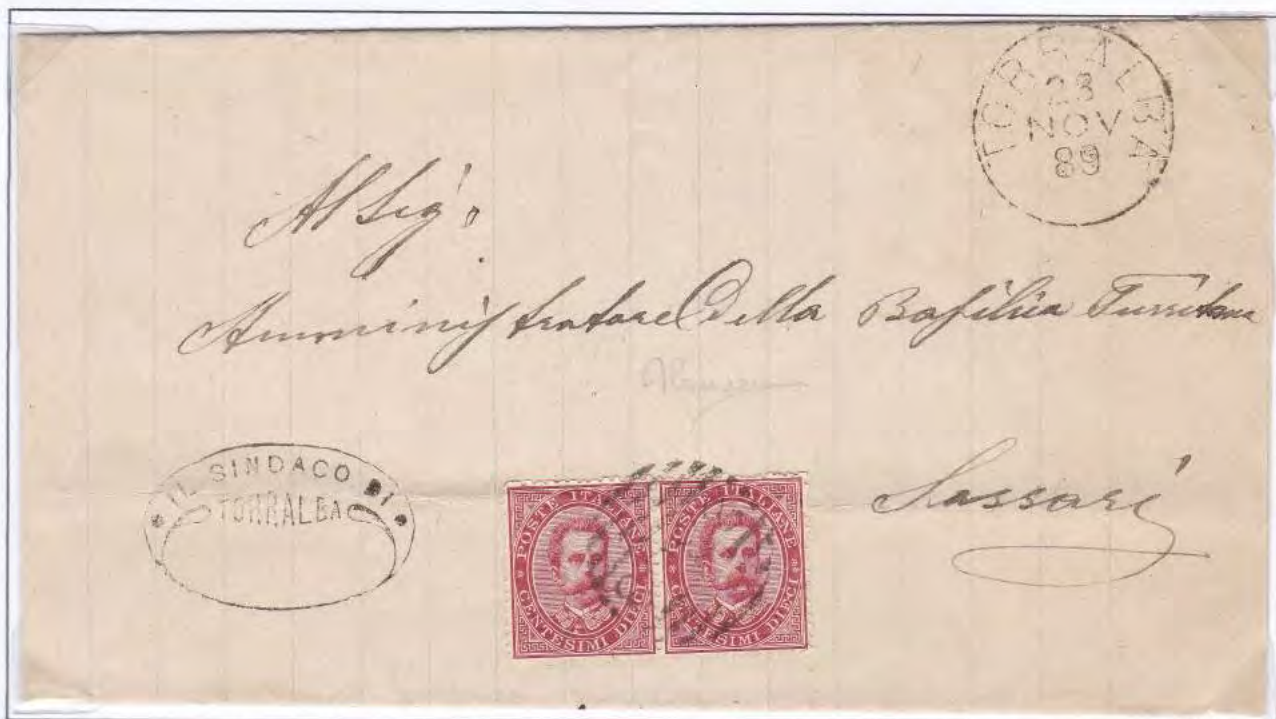 TORRALBA
23
NOV
89
Al Sig.
Amministratore Della Basilica Turritana
Sassari
IL SINDACO DI
TORRALBA
POSTE ITALIANE
CENTESIMI DIECI
POSTE ITALIANE
CENTESIMI DIECI